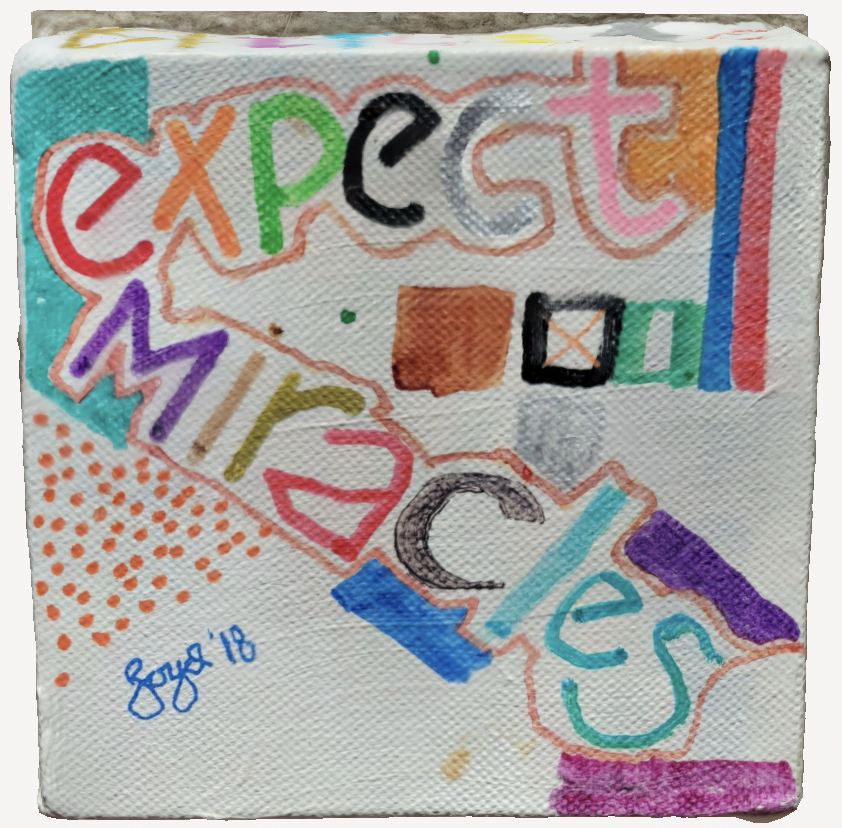 expect
Miracles
'18